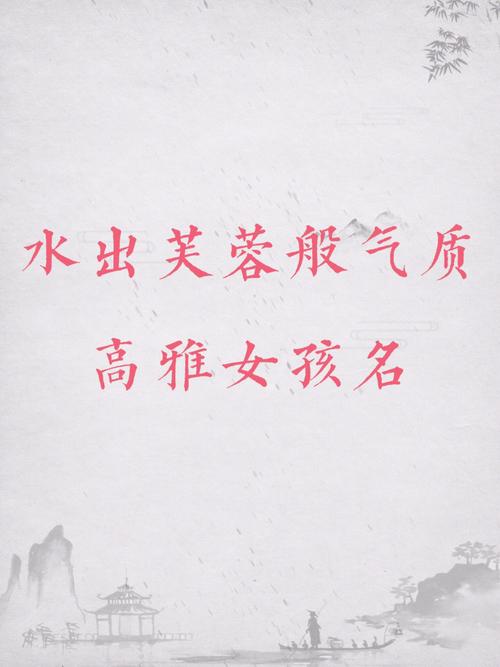 水出芙蓉般气质
高雅女孩名